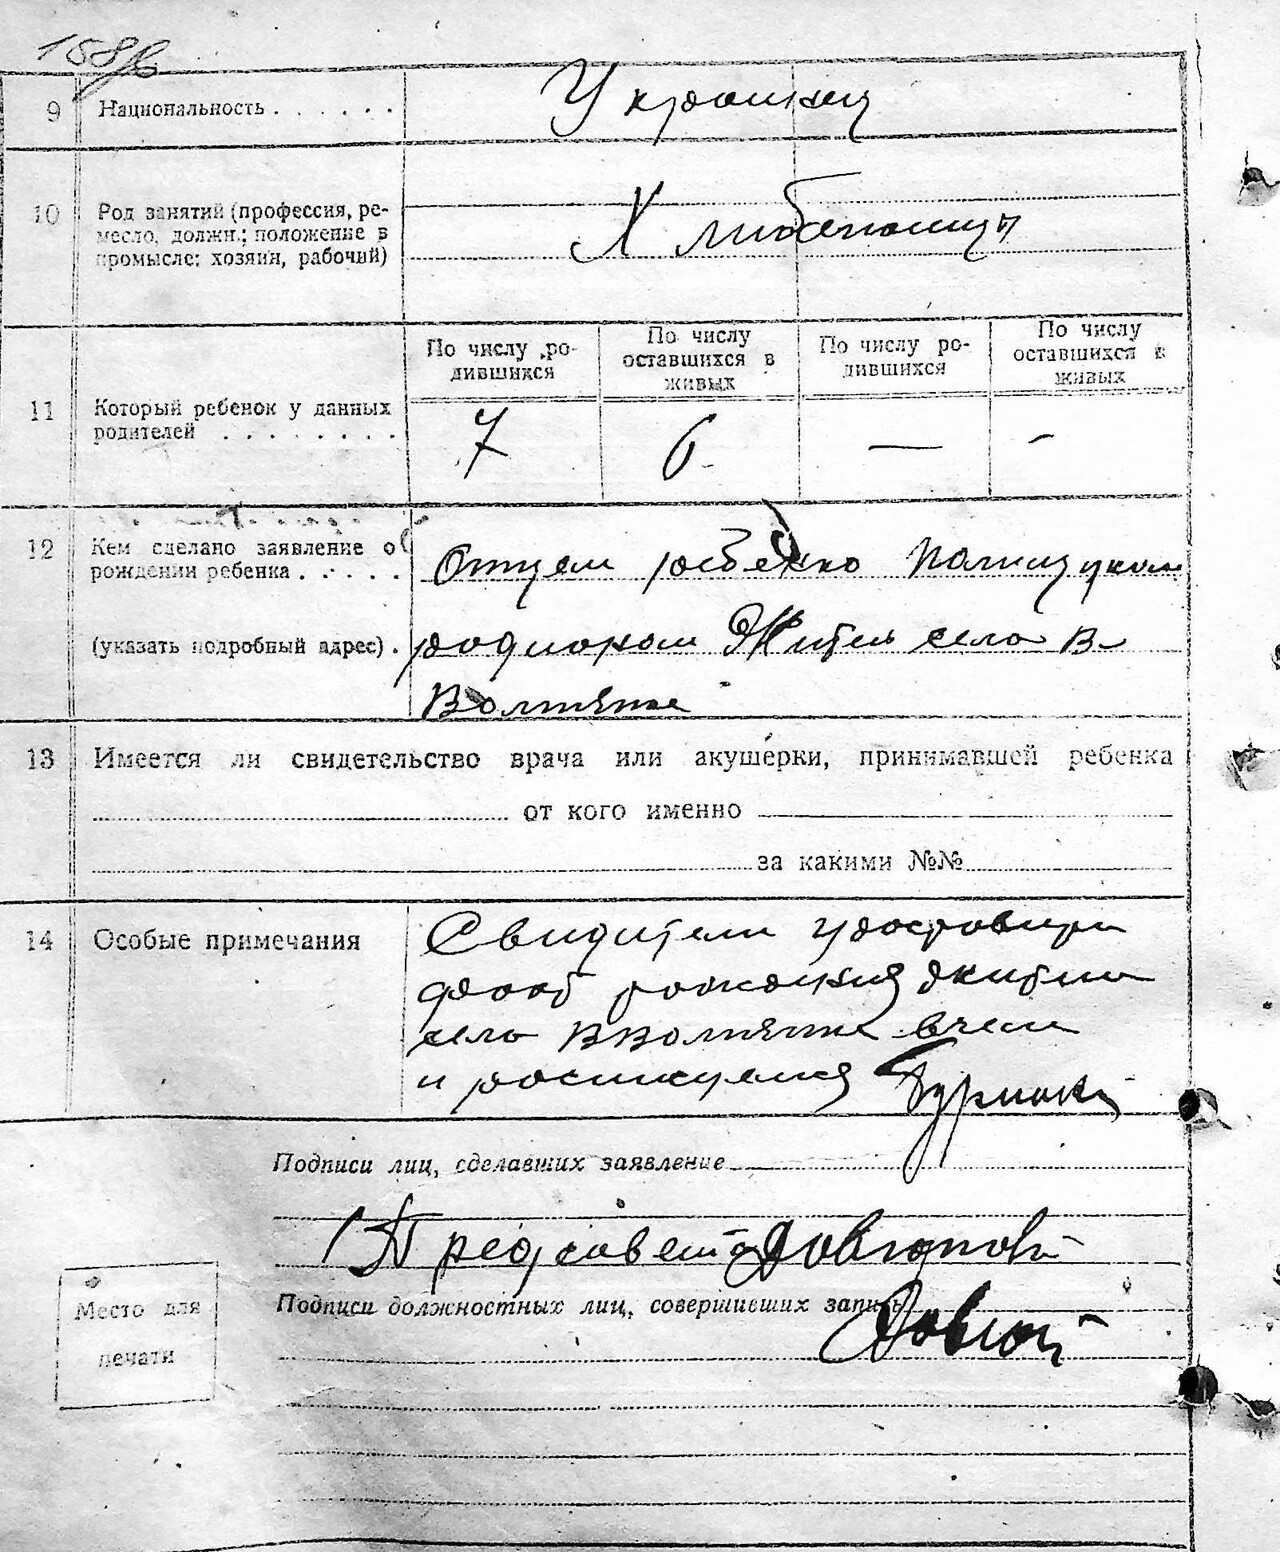 9 Национальность . . . . . . Украинцы
10 Род занятий (профессия, ре-
месло, должн.; положение в
промысле: хозяин, рабочий)
Хлибапашци
По числу ро-
дившихся
По числу
оставшихся в
живых
По числу ро-
дившихся
По числу
оставшихся в
живых
11 Который ребенок у данных
родителей . . . . . . . .
7 6 — -
12 Кем сделано заявление о
рождении ребенка . . . . .
(указать подробный адрес) .
Отцем ребенко Полищуком
родионом Житель село В
Волтянке
13 Имеется ли свидетельство врача или акушерки, принимавшей ребенка
от кого именно
за какими №№
14 Особые примечания
Свидители
рождения жители
село
и росписуемся
Подписи лиц, сделавших заявление
Предсовета
Подписи должностных лиц, совершивших запись
Место для
печати